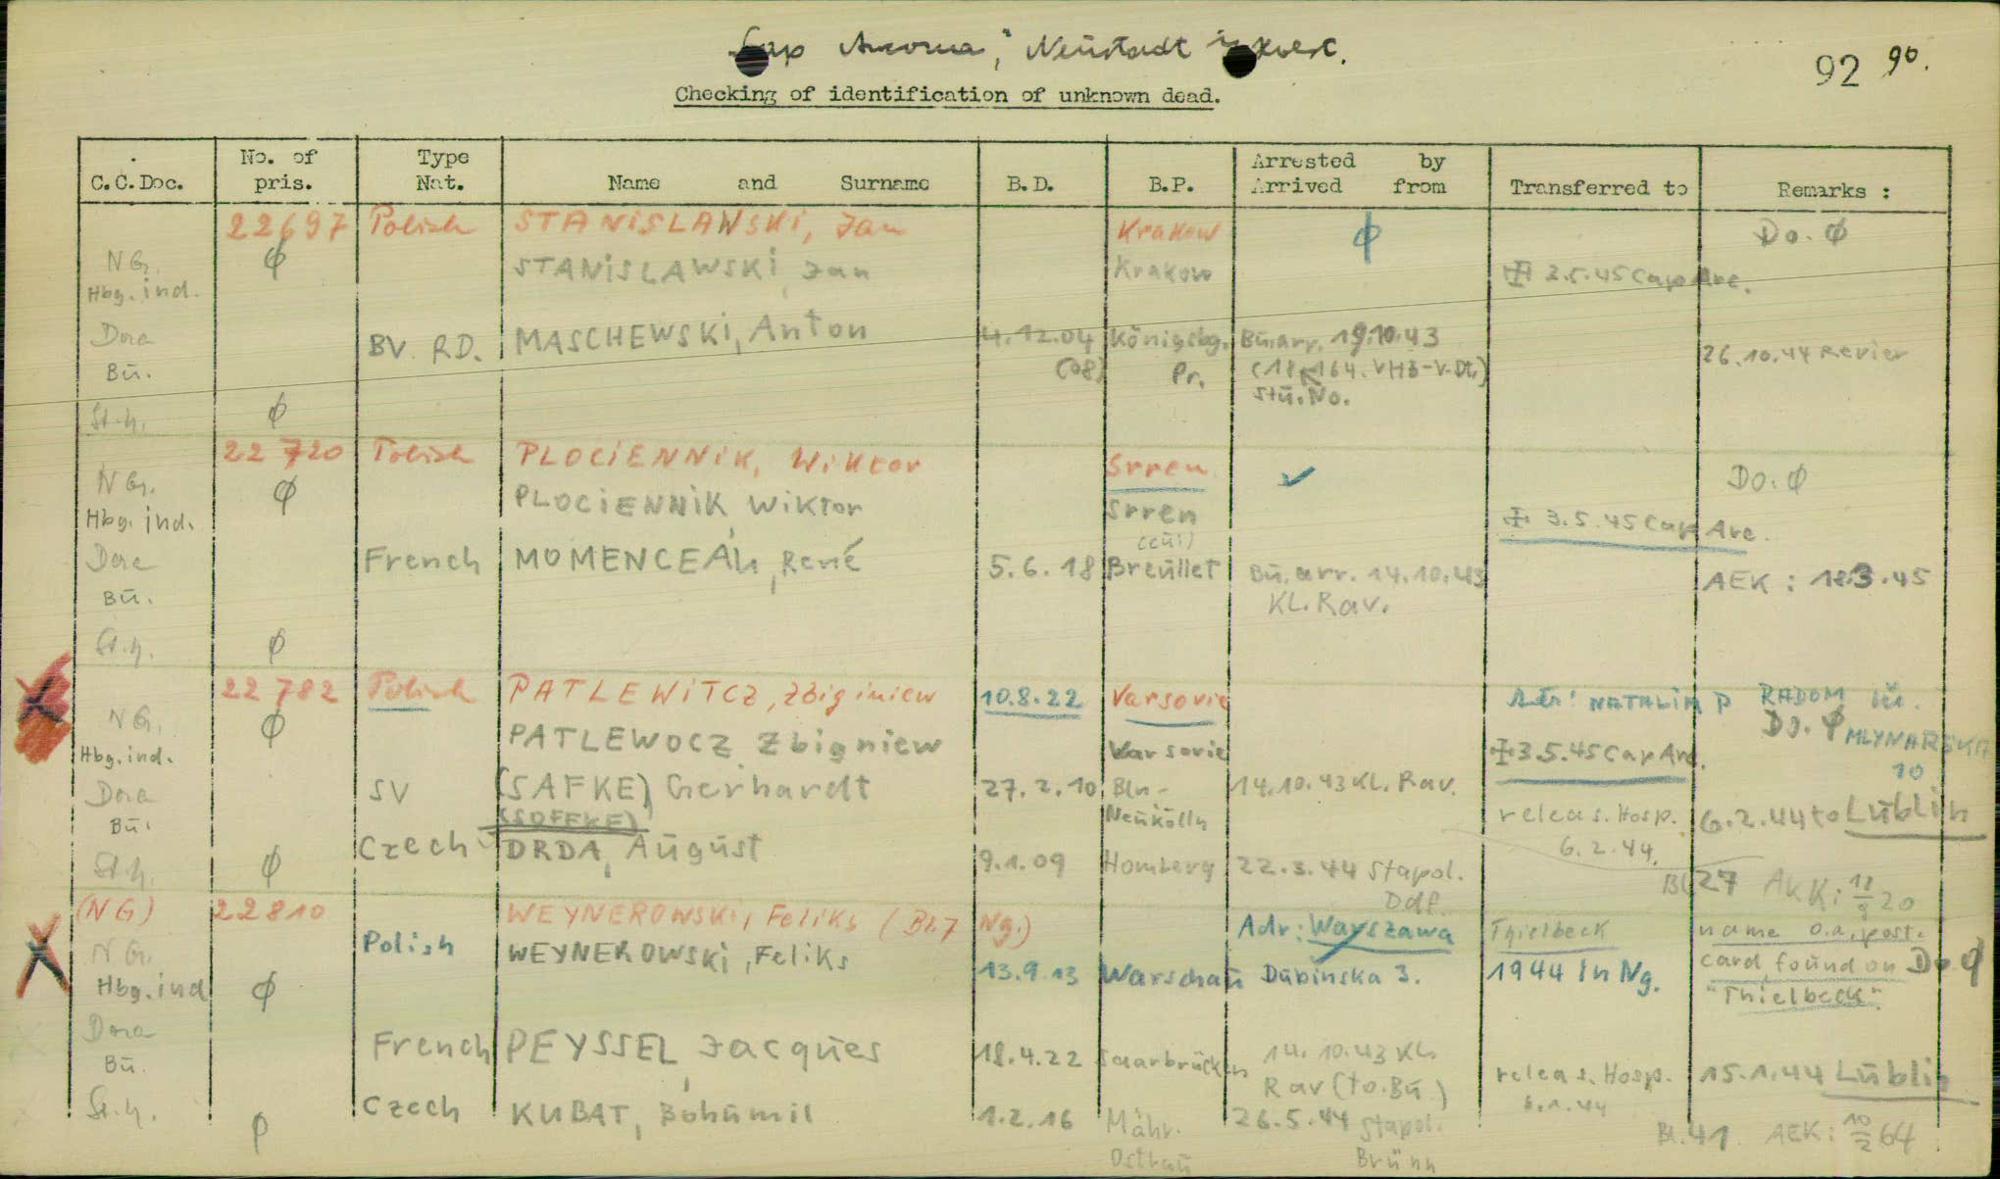 "Cap Arcona", Neustadt i. Holst.
92 90.
Checking of identification of unknown dead.
C.C.Doc. No. of pris. Type Nat. Name and Surname B.D. B.P. Arrested by Arrived from Transferred to Remarks :
22697 Polish STANISLAWSKI, Jan Krakow φ Do. φ
NG. φ STANISLAWSKI, Jan Krakow
Hbg. ind. ✠ 3.5.45 Cap Arc.
Dora BV. RD. MASCHEWSKI, Anton 4.12.04 Königsbg. Bu.arr. 19.10.43 26.10.44 Revier
Bu. (08) Pr. (18 164. VHB-V.Dt.)
Stu. No.
St.h. φ
22720 Polish PLOCIENNIK, Wiktor Srren ✓ Do. φ
NG. φ PLOCIENNIK, Wiktor Srren
Hbg. ind. ✠ 3.5.45 Cap Arc.
Dora French MOMENCEAU, René 5.6.18 Breullet Bu. arr. 14.10.43 AEK : 18.3.45
Bu. KL. Rav.
St.h. φ
22782 Polish PATLEWITCZ, Zbiginiew 10.8.22 Varsovie NATALIA P RADOM
NG. φ PATLEWOCZ Zbigniew Varsovie Do. φ MLYNARSKA
Hbg. ind. ✠ 3.5.45 Cap Arc. 10
Dora SV (SAFKE) Gerhardt 27.2.10 Bln- 14.10.43 KL. Rav. releas. Hosp. 6.2.44 to Lublin
Bu. (SOFFKE) Neukölln 6.2.44.
St.h. φ Czech DRDA, August 9.1.09 Homberg 22.3.44 Stapol. Bl 27 AKK: 18/9 20
Ddf.
(NG) 22810 WEYNEROWSKI, Feliks (Bl.7 Ng.) Adr: Warszawa Thielbeck name o.a. post.
NG. Polish WEYNEROWSKI, Feliks 13.9.13 Warschau Dubinska 3. 1944 in Ng. card found on Do. φ
Hbg. ind φ "Thielbeck".
Dora French PEYSSEL, Jacques 18.4.22 Saarbrücken 14.10.43 KL. releas. Hosp. 15.1.44 Lublin
Bu. Rav (to. Bu.) 6.1.44
St.h. φ Czech KUBAT, Bohumil 1.2.16 Mähr. 26.5.44 Stapol. Bl.41. AEK: 10/2 64
Ostrau Brünn